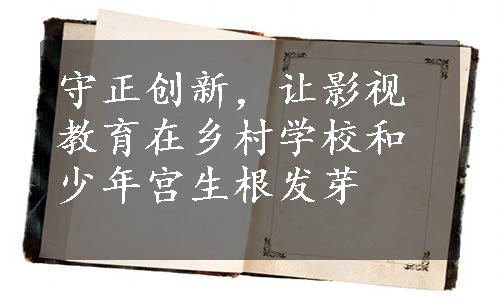 守正创新，让影视
教育在乡村学校和
少年宫生根发芽